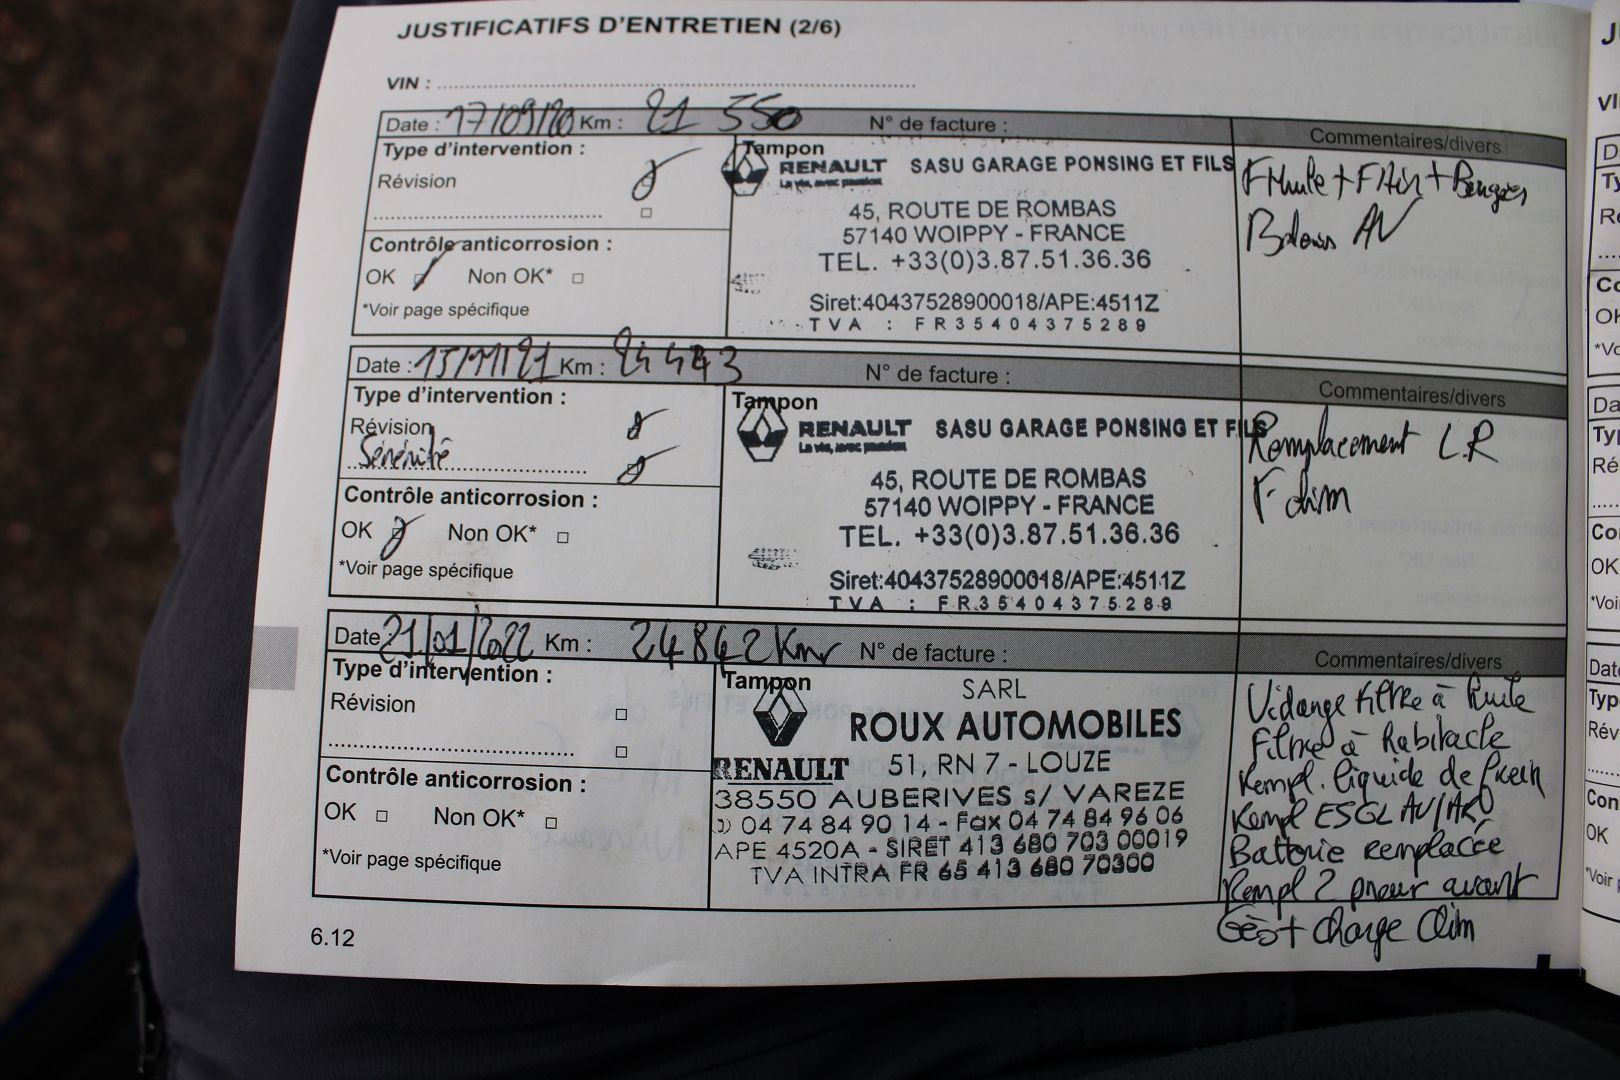 JUSTIFICATIFS D'ENTRETIEN (2/6)
VIN :
Date : 17/09/20 Km : 21 550 N° de facture :
Commentaires/divers
Type d'intervention :
Révision
Contrôle anticorrosion :
OK Non OK*
*Voir page spécifique
Tampon
RENAULT SASU GARAGE PONSING ET FILS
La vie, avec passion
45, ROUTE DE ROMBAS
57140 WOIPPY - FRANCE
TEL. +33(0)3.87.51.36.36
Siret:40437528900018/APE:4511Z
TVA : FR35404375289
F Huile + F Air + Bougies
AV
Date : 15/11/21 Km : 24 443 N° de facture :
Commentaires/divers
Type d'intervention :
Révision
Sérénité
Contrôle anticorrosion :
OK Non OK*
*Voir page spécifique
Tampon
RENAULT SASU GARAGE PONSING ET FILS
La vie, avec passion
45, ROUTE DE ROMBAS
57140 WOIPPY - FRANCE
TEL. +33(0)3.87.51.36.36
Siret:40437528900018/APE:4511Z
TVA : FR35404375289
Remplacement L.R
F clim
Date 21/01/2022 Km : 24 842 Km N° de facture :
Commentaires/divers
Type d'intervention :
Révision
Contrôle anticorrosion :
OK Non OK*
*Voir page spécifique
Tampon
SARL
ROUX AUTOMOBILES
RENAULT 51, RN 7 - LOUZE
38550 AUBERIVES s/ VAREZE
04 74 84 90 14 - Fax 04 74 84 96 06
APE 4520A - SIRET 413 680 703 00019
TVA INTRA FR 65 413 680 70300
Vidange filtre à huile
Filtre à habitacle
Rempl. liquide de frein
Rempl ESGL AV/AR
Batterie remplacée
Rempl 2 pneur avant
Géo + charge Clim
6.12